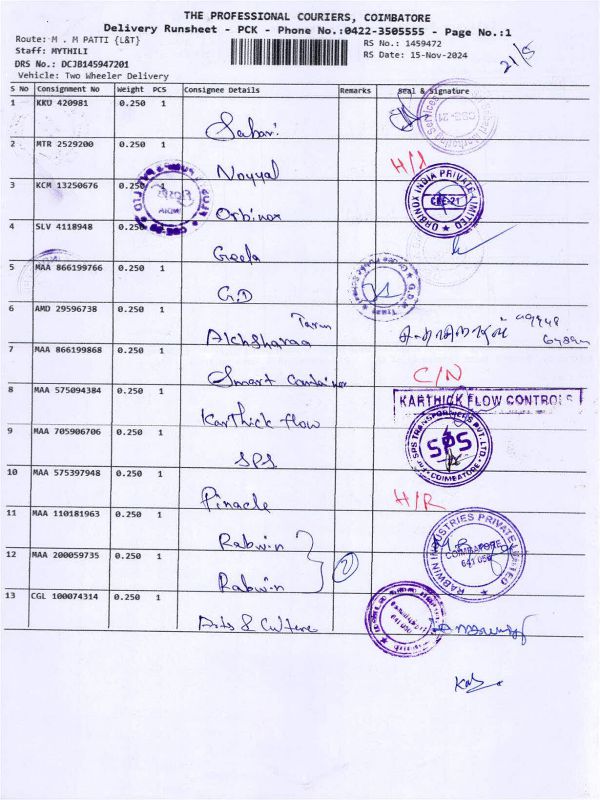 THE PROFESSIONAL COURIERS, COIMBATORE
Delivery Runsheet - PCK - Phone No.:0422-3505555 - Page No.:1
Route: M . M PATTI {L&T}
RS No.: 1459472
Staff: MYTHILI
RS Date: 15-Nov-2024
21/5
DRS No.: DCJB145947201
Vehicle: Two Wheeler Delivery
S No Consignment No Weight PCS Consignee Details Remarks Seal & Signature
1 KKU 420981 0.250 1 Sabari
2 MTR 2529200 0.250 1 Noyyal
3 KCM 13250676 0.250 1 Orbinox ORBINOX INDIA PRIVATE LIMITED CBE-21
4 SLV 4118948 0.250 1 Geeda
5 MAA 866199766 0.250 1 G.D
6 AMD 29596738 0.250 1 Akhsharaa
7 MAA 866199868 0.250 1 Smart Container C/N
8 MAA 575094384 0.250 1 Karthick flow KARTHICK FLOW CONTROLS
9 MAA 705906706 0.250 1 SPS SPS TRANSFORMERS PVT. LTD. SPS COIMBATORE
10 MAA 575397948 0.250 1 Pinacle H/R
11 MAA 110181963 0.250 1 Rabwin RABWIN INDUSTRIES PRIVATE LIMITED COIMBATORE 641 050
12 MAA 200059735 0.250 1 Rabwin 2
13 CGL 100074314 0.250 1 Arts & Culture